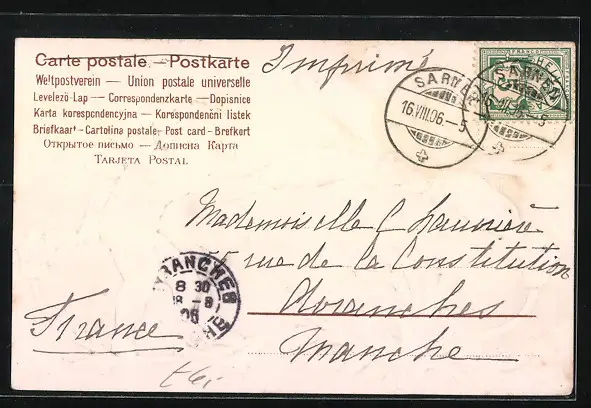 Carte postale — Postkarte
Weltpostverein — Union postale universelle
Levelező-Lap — Correspondenzkarte — Dopisnice
Karta korespondencyjna — Korespondenční lístek
Briefkaart — Cartolina postale, Post card — Brefkort
Открытое письмо — Дописна Карта
Tarjeta Postal
Imprimé
FRANCO
SARNEN
16.VIII.06–5
SARNEN
Mademoiselle
rue de la Constitution
Avranches
Manche
France
AVRANCHES
8 30
18 - 8
06